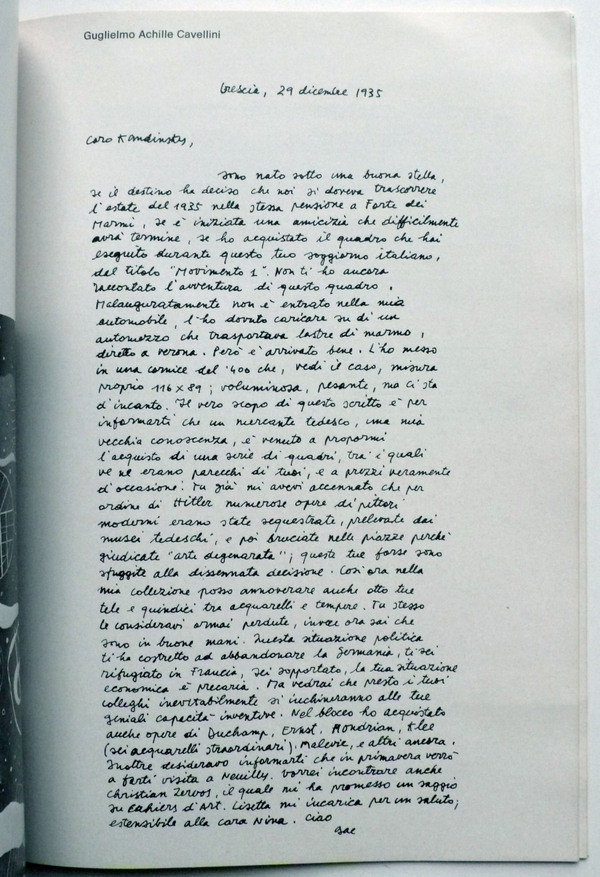 Guglielmo Achille Cavellini
brescia, 29 dicembre 1935
Caro Kandinsky,
sono nato sotto una buona stella,
se il destino ha deciso che noi si doveva trascorrere
l'estate del 1935 nella stessa pensione a Forte dei
Marmi, se è iniziata una amicizia che difficilmente
avrà termine, se ho acquistato il quadro che hai
eseguito durante questo tuo soggiorno italiano,
dal titolo "Movimento 1". Non ti ho ancora
raccontato l'avventura di questo quadro.
Malauguratamente non è entrato nella mia
automobile, l'ho dovuto caricare su di un
automezzo che trasportava lastre di marmo,
diretto a verona. Però è arrivato bene. L'ho messo
in una cornice del '400 che, vedi il caso, misura
proprio 116 x 89; voluminosa, pesante, ma ci sta
d'incanto. Il vero scopo di questo scritto è per
informarti che un mercante tedesco, una mia
vecchia conoscenza, è venuto a propormi
l'acquisto di una serie di quadri, tra i quali
ve ne erano parecchi di tuoi, e a prezzi veramente
d'occasione. Tu già mi avevi accennato che per
ordine di Hitler numerose opere di pittori
moderni erano state sequestrate, prelevate dai
musei tedeschi, e poi bruciate nelle piazze perchè
giudicate "arte degenarata"; queste tue forse sono
sfuggite alla dissennata decisione. Così ora nella
mia collezione posso annoverare anche otto tue
tele e quindici tra acquarelli e tempere. Tu stesso
le consideravi ormai perdute, invece ora sai che
sono in buone mani. Questa situazione politica
ti ha costretto ad abbandonare la Germania, ti sei
rifugiato in Francia, sei sopportato, la tua situazione
economica è precaria. Ma vedrai che presto i tuoi
colleghi inevitabilmente si inchineranno alle tue
geniali capacità inventive. Nel blocco ho acquistato
anche opere di Duchamp, Ernst, Mondrian, Klee
(sei acquarelli straordinari), Malevic, e altri ancora.
Inoltre desideravo informarti che in primavera verrò
a farti visita a Neuilly. Vorrei incontrare anche
Christian Zervos, il quale mi ha promesso un saggio
su Cahiers d'Art. Lisetta mi incarica per un saluto,
estensibile alla cara Nina. Ciao
gac